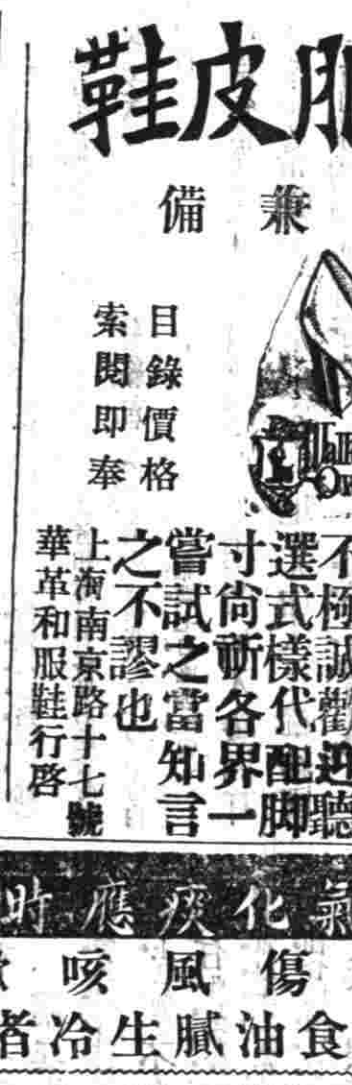 皮鞋
兼備
目錄價格
索閱即奉
不極誠歡迎聽
選式樣代配脚
寸尚祈各界一
嘗試之當知言
之不謬也
上海南京路十七號
華革和服鞋行啓
氣化痰應時
傷風咳
食油膩生冷者